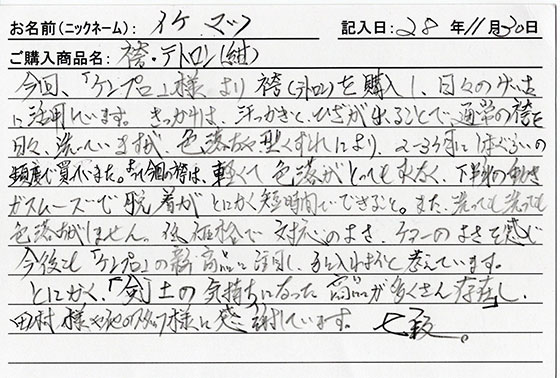 お名前(ニックネーム): イケ マツ 記入日: 28 年 11 月 30 日
ご購入商品名: 袴・テトロン(紺)
今回、「ケンプロ」様より袴(テトロン)を購入し、日々のけいこ
に活用しています。きっかけは、汗っかきと、ひざが出ることで通常の袴を
日々、洗っていますが、色落ちや型くずれにより、2~3ヶ月に1本ぐらいの
頻度で買っていました。今回の袴は、軽くて色落がとっても少なく、下半身の動き
がスムーズで脱着がとにかく短時間でできること。また、洗っても洗っても
色落がしません。低価格で対応のよさ、テナーのよさを感じ
今後も「ケンプロ」の新商品に注目し、手に入れようと考えています。
とにかく、「剣」士の気持ちになった商品が多くさん存在し、
田村様や他のスタッフ様に感謝しています。 七段。